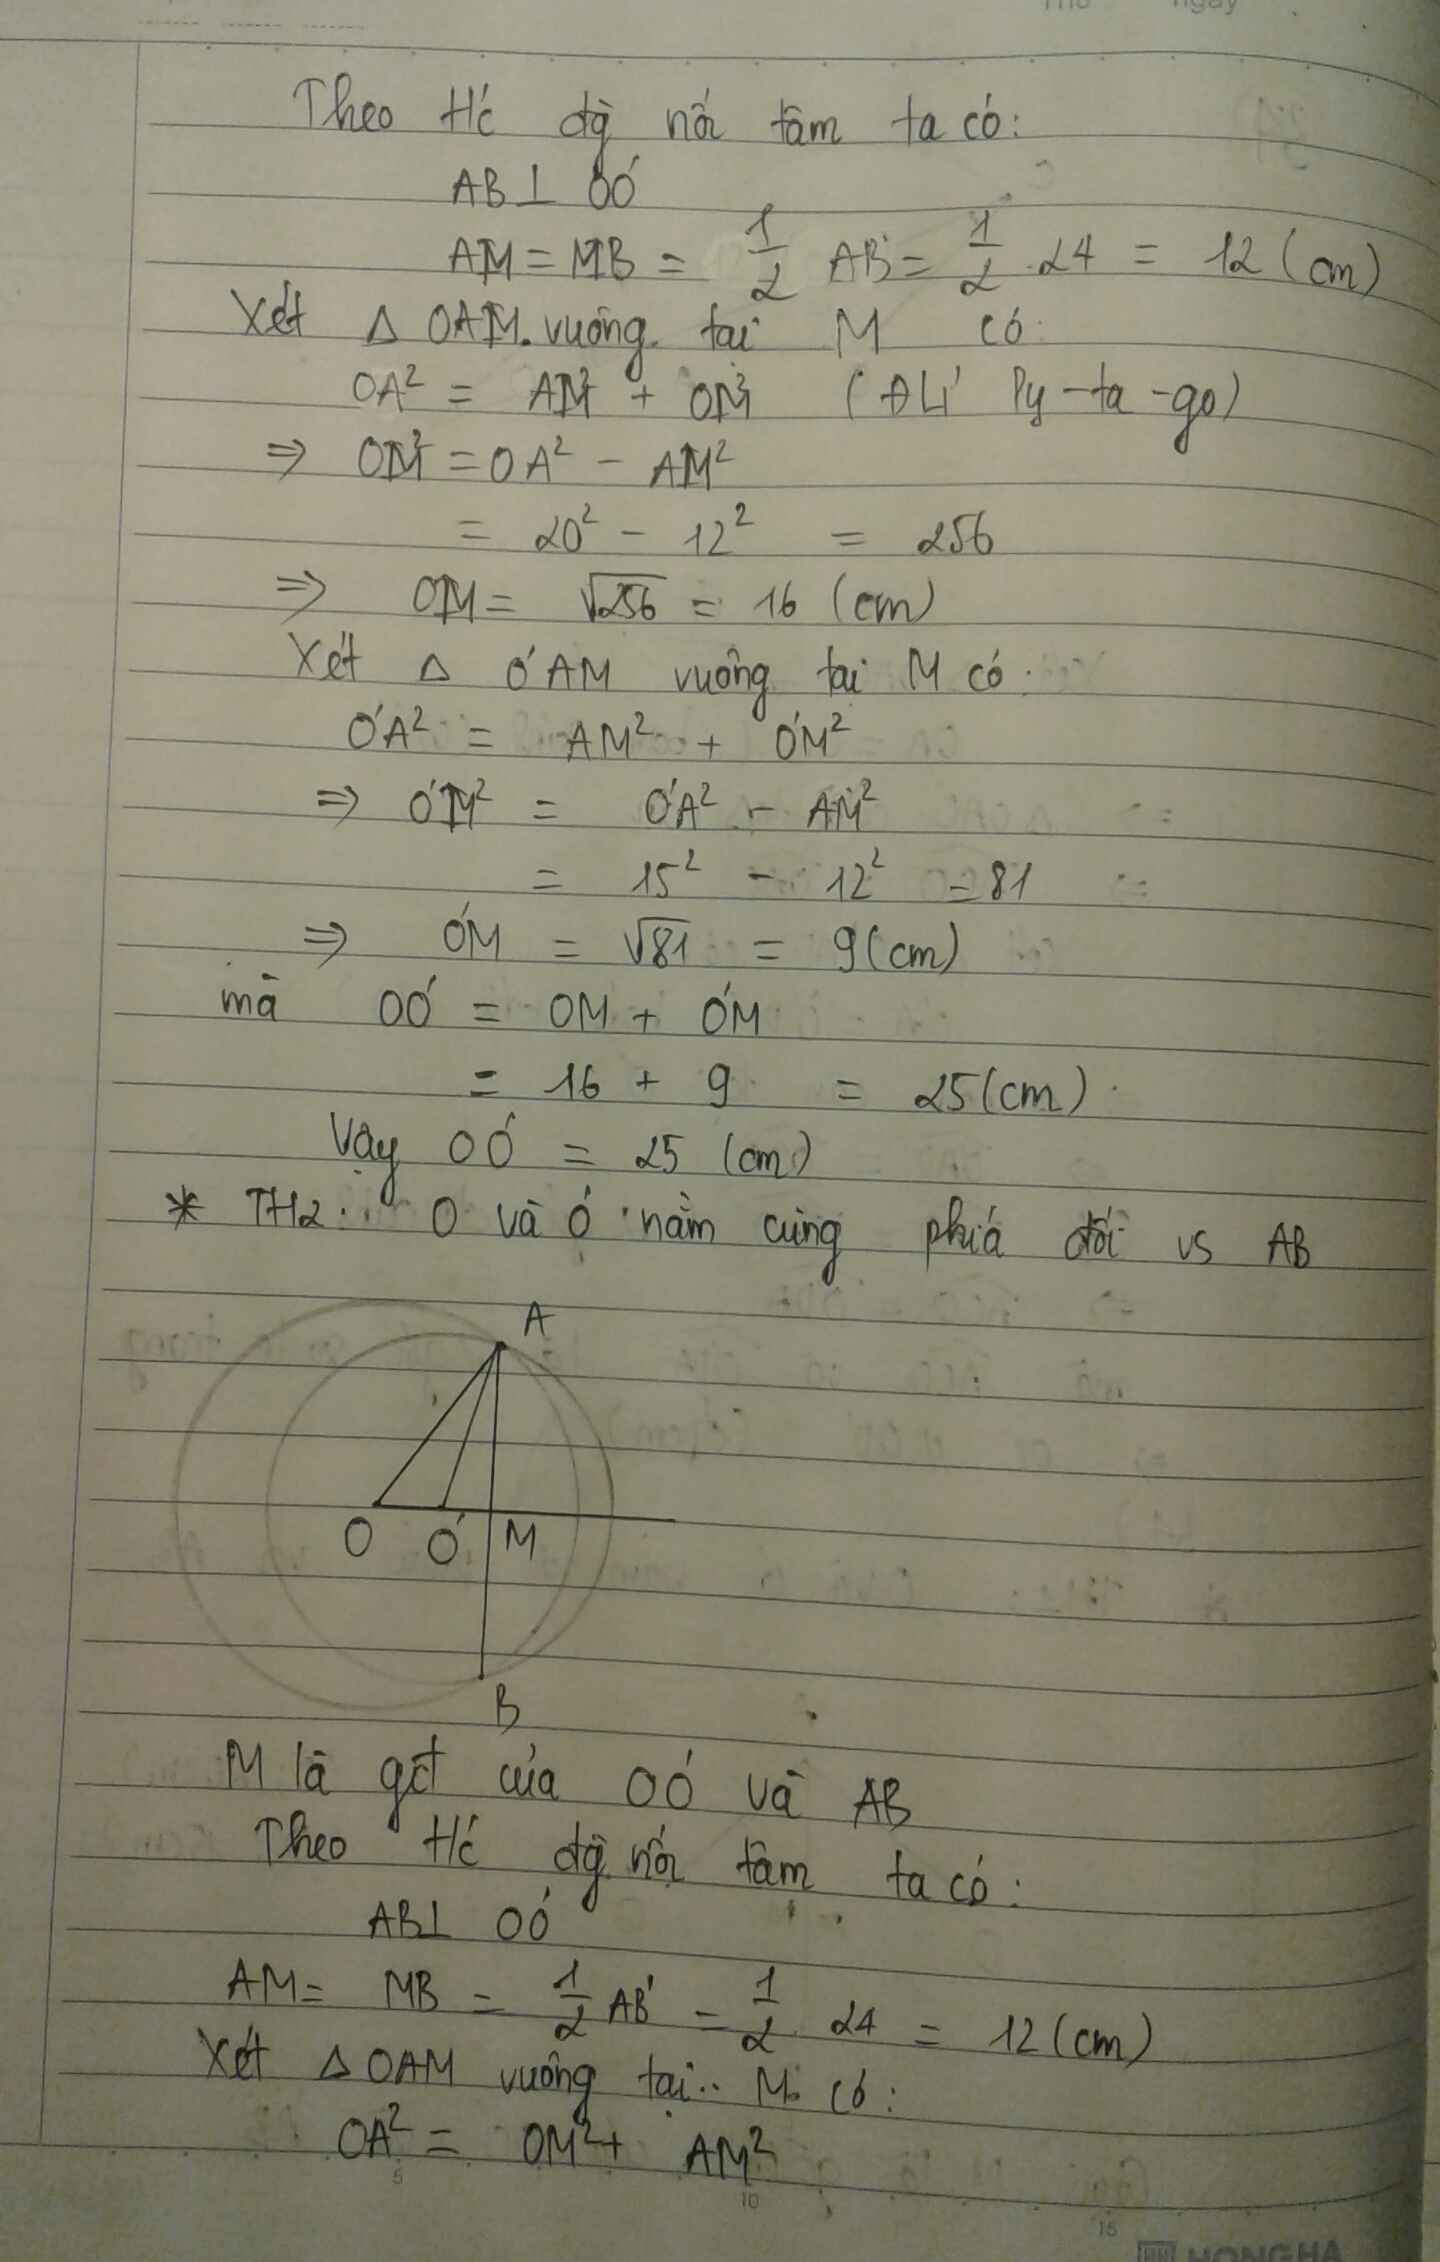 Thứ ngày
Theo t/c đg nối tâm ta có:
AB ⊥ OO'
AM = MB = 1/2 AB = 1/2 . 24 = 12 (cm)
Xét △ OAM vuông tại M có
OA² = AM² + OM² (ĐLí Py-ta-go)
⇒ OM² = OA² - AM²
= 20² - 12² = 256
⇒ OM = √256 = 16 (cm)
Xét △ O'AM vuông tại M có:
O'A² = AM² + O'M²
⇒ O'M² = O'A² - AM²
= 15² - 12² = 81
⇒ O'M = √81 = 9 (cm)
mà OO' = OM + O'M
= 16 + 9 = 25 (cm)
Vậy OO' = 25 (cm)
* TH2: O và O' nằm cùng phiá đối vs AB
A
O O' M
B
M là gđ của OO' và AB
Theo t/c đg nối tâm ta có:
AB ⊥ OO'
AM = MB = 1/2 AB = 1/2 . 24 = 12 (cm)
Xét △ OAM vuông tại M có:
OA² = OM² + AM²
5 10 15
HONG HA